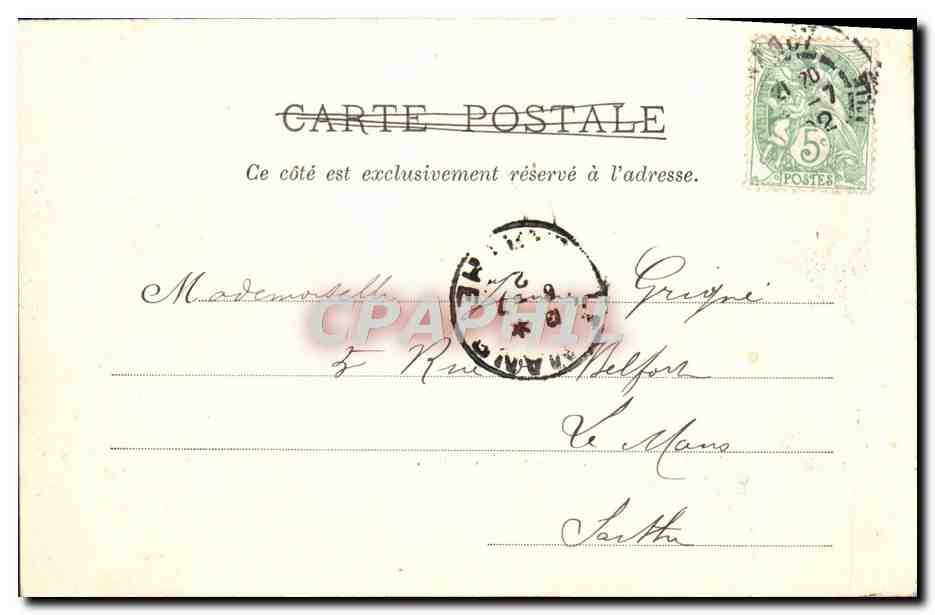 CARTE POSTALE
Ce côté est exclusivement réservé à l'adresse.
5c
POSTES
Mademoiselle Grigné
CPAPHIL
5 Rue Belfort
Le Mans
Sarthe